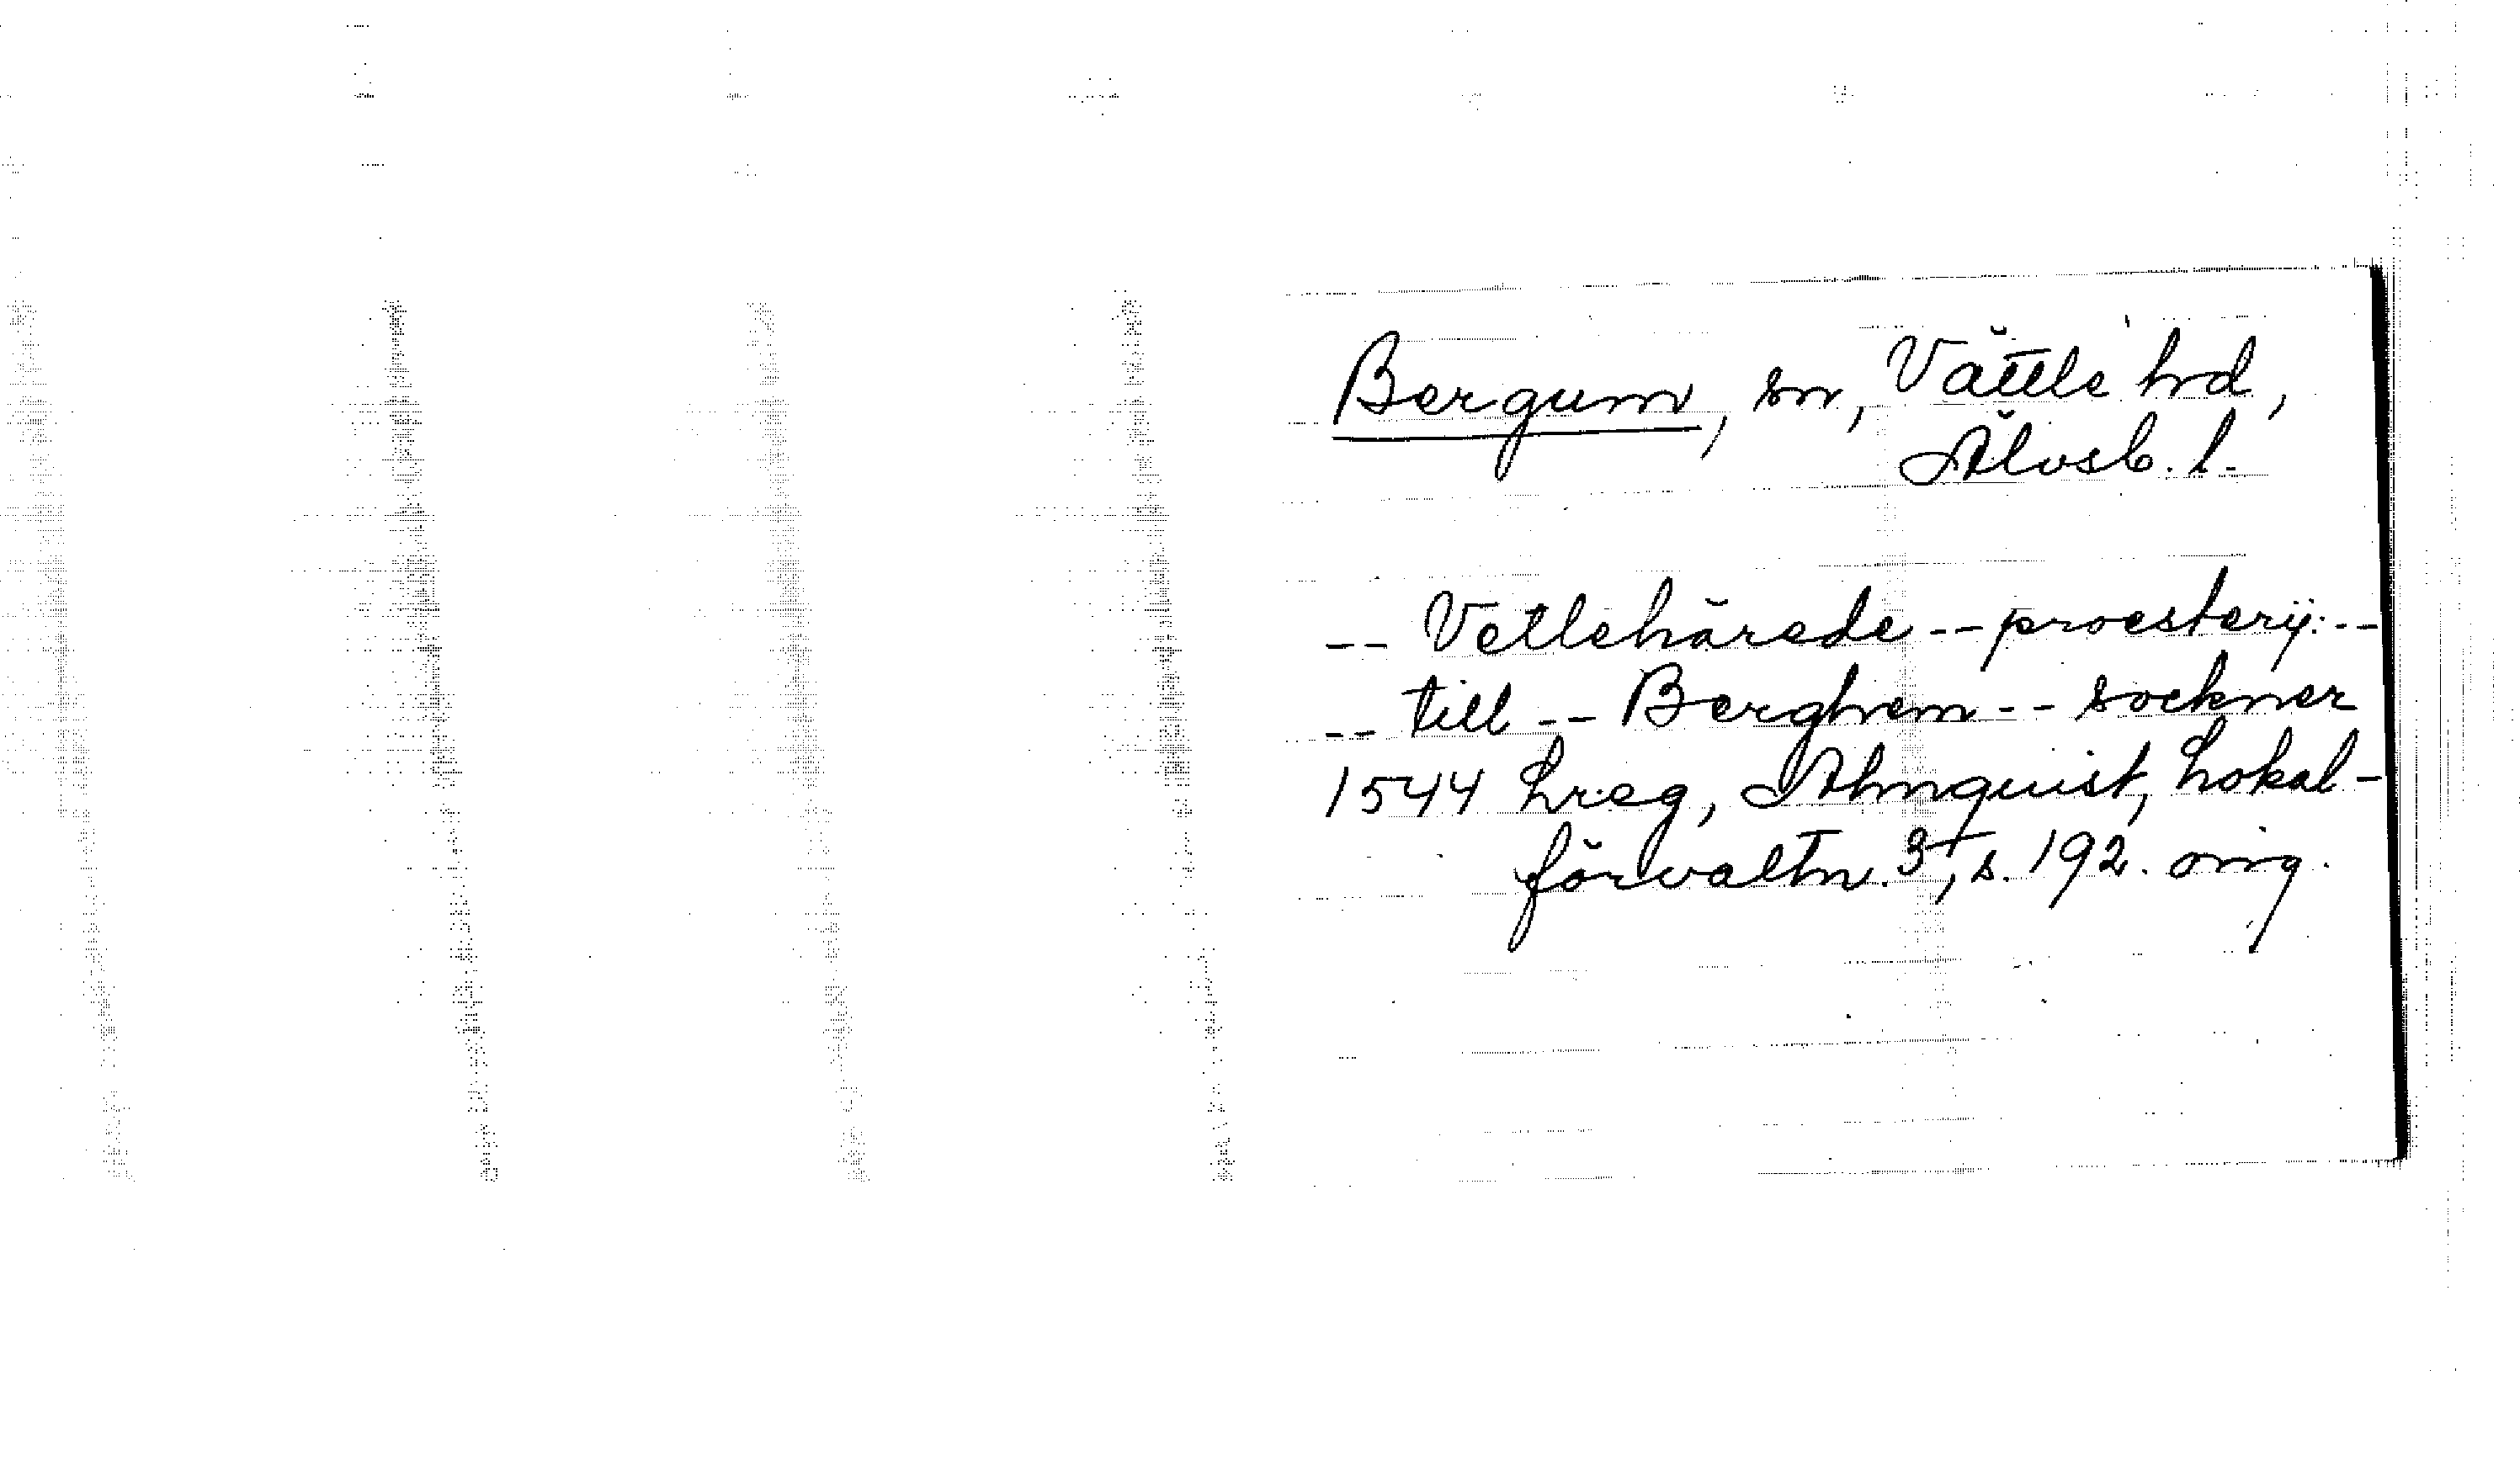 Bergum, sn, Vättle hd,
Älvsb. l.
-- Vetlehärade -- proesterij: --
-- till -- Berghem -- sockner
1544 Lreg, Almquist, Lokal-
förvaltn. 3, s. 192. orig.